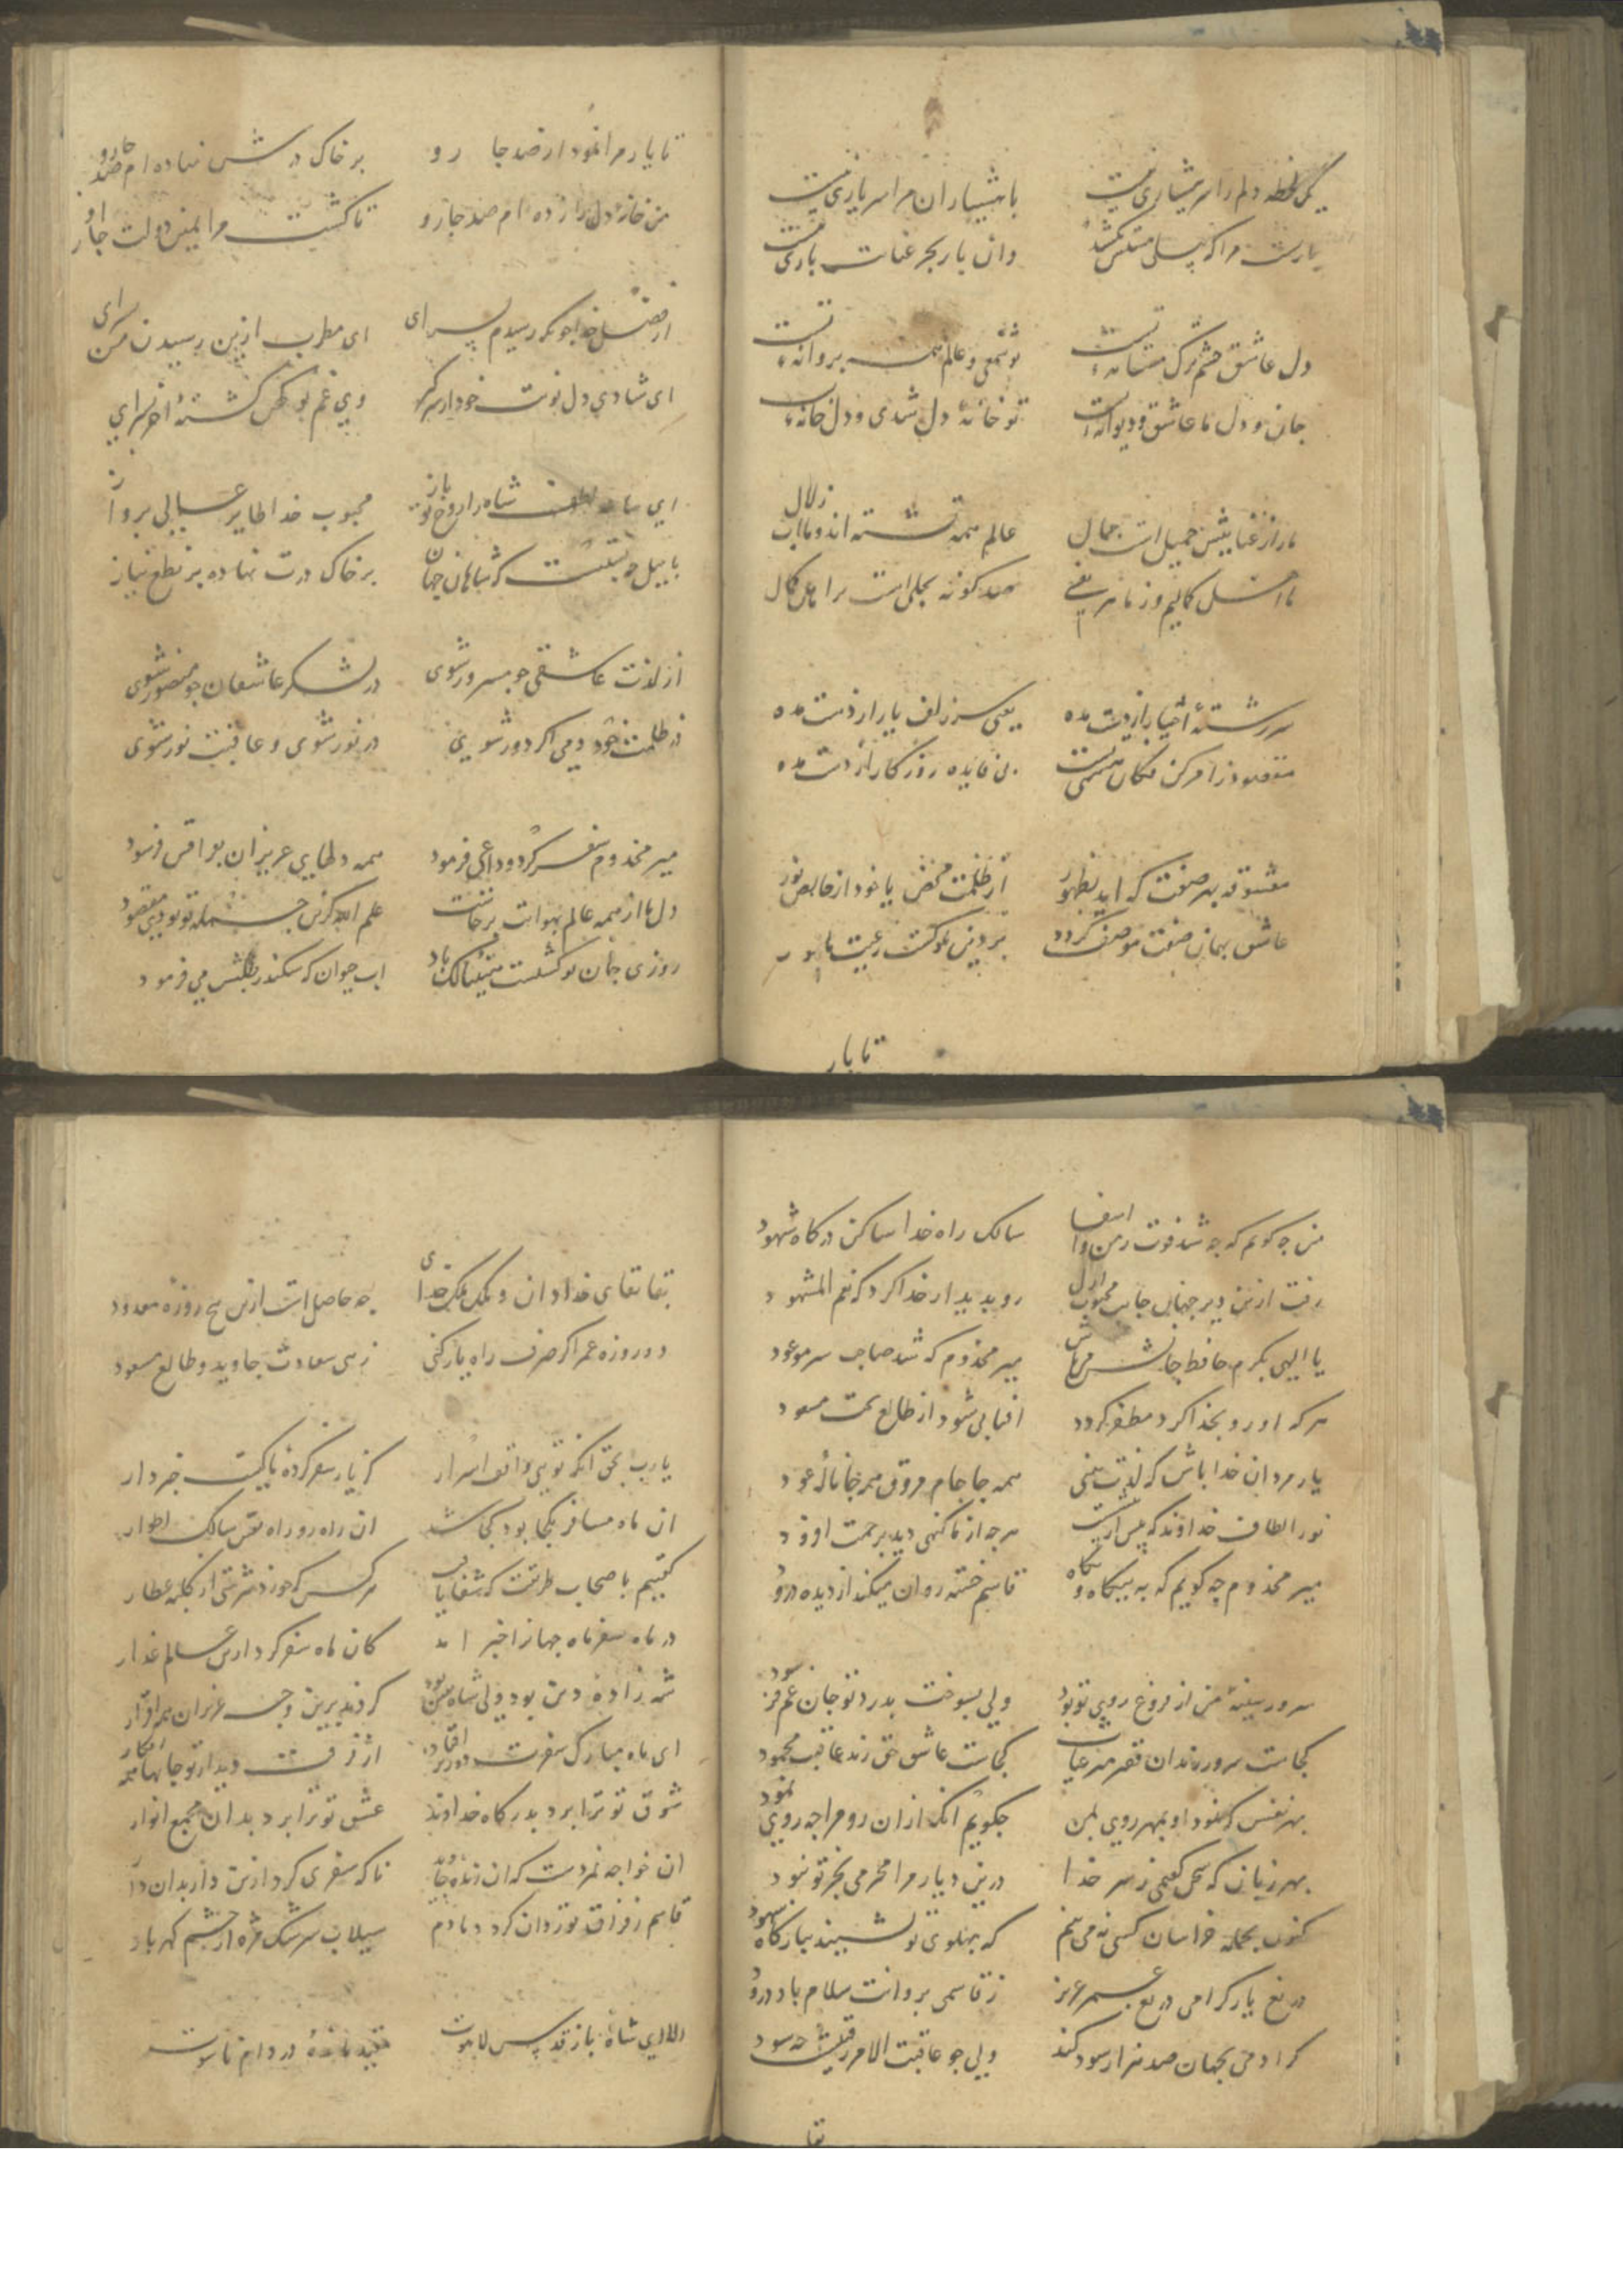 یک لحظه دلم را سر هشیاری نیست
با هشیاران مرا سر یاری نیست
یاریست مرا که
وان یار بجز عنایت باری نیست
دل عاشق چشم ترک مستانه تست
تو شمعی و عالم همه پروانه تست
جان و دل ما عاشق و دیوانه تست
تو خانه دل شدی و دل خانه تست
ما را ز عنایتش جمیل است جمال
عالم همه تشنه اند و ما آب زلال
ما اهل کمالیم و ز ما هر نفسی
صد گونه تجلی است بر اهل کمال
سر رشته اختیار از دست مده
یعنی سر زلف یار از دست مده
مقصود ز امر کن فکان هستی تست
بی فایده روزگار از دست مده
معشوقه بهر صفت که اید بظهور
از ظلمت محض یا خود از خالص نور
عاشق بهمان صفت موصف گردد
بر دین ملوکست رعیت
تا یار
تا یار مرا نمود از صد جا رو
بر خاک درش نهاده ام صد جا رو
من خانه دل را زده ام صد جا رو
تا گشت مرا یمین دولت
از فضل خدا چونکه رسیدم بسرای
ای مطرب ازین رسیدن من بسرای
ای شادی دل نوبت خود از سر گیر
وی غم تو کهن گشته اخر
ای ساعد لطف شاه را روح تو باز
محبوب خدا طایر عالی پرواز
که شاهان جهان
بر خاک درت نهاده بر نطع نیاز
از لذت عاشقی چو مسرور شوی
در لشکر عاشقان چو منصور شوی
از ظلمت خود دمی اگر دور شوی
در نور شوی و عاقبت نور شوی
میر مخدوم سفر کرد و وداعی فرمود
همه دلهای عزیزان بفراقش فرسود
دل ما از همه عالم بهوایت برخاست
علم الله کزین جمله تو بودی مقصود
روزی جان تو گشتست باد
اب حیوان که سکندر طلبش می فرمود
من چه گویم که چه شد فوت ز من وا اسفا
سالک راه خدا ساکن درگاه شهود
رفت ازین دیر جهان جانب محبوب ازل
رو بدیدار خدا کرد که نعم المشهود
یا الهی بکرم حافظ جانش می باش
میر مخدوم که شد صاحب سر موعود
هر که او رو بخدا کرد مظفر گردد
افتابی شود از طالع بخت مسعود
یار مردان خدا باش که لذت بینی
همه جا جام مروق همه جا ناله عود
نور الطاف خداوند که
هر چه از ما گنهی دید برحمت افزود
میر مخدوم چه گویم که به بیگاه و بگاه
قاسم خسته روان میکند از دیده درود
سرور سینه من از فروغ روی تو بود
ولی بسوخت بدرد تو جان غم فرسود
کجاست سرور رندان قصر میر غیاث
کجاست عاشق حق زنده عاقبت محمود
بهر نفس که نمود او بمهر روی بمن
چگویم انکه ازان رو مرا چه روی نمود
بهر زبان که سخن گفتمی ز سر خدا
درین دیار مرا محرمی بجز تو نبود
کنون بجمله خراسان کسی نمی بینم
که بپهلوی تو نشیند ببارگاه شهود
دریغ یار گرامی دریغ عمر عزیز
ز قاسمی بروانت سلام باد و درود
گر ادمی بجهان صد هزار سود کند
ولی چو عاقبت الامر چه سود
بقا
بقا بقای خدا دان و ملک ملک خدای
چه حاصل است ازین پنج روزه معدود
دو روزه عمر اگر صرف راه یار کنی
زهی سعادت جاوید و طالع مسعود
یا رب بحق انکه تویی واقف اسرار
کز یار سفر کرده ما کیست خبردار
ان ماه مسافر بکجا بود کجا شد
ان راه رو راه سالک اطوار
گفتیم باصحاب طریقت که شفا یافت
هر کس که خورد شربتی از کلبه عطار
در ماه سفر ماه جهانرا خبر امد
کان ماه سفر کرد ازین عالم غدار
شهزاده دین بود ولی شاه یقین بود
کردند برین وجه عزیزان همه اقرار
ای ماه مبارک سفرت دور تر افتاد
از فرقت دیدار تو جانها همه افگار
شوق تو ترا برد بدرگاه خداوند
عشق تو ترا برد بدان مجمع انوار
ان خواجه نمردست که ان زنده جاوید
ناگه سفری کرد ازین دار بدان دار
قاسم ز فراق تو روان کرد دمادم
سیلاب سرشک مژه از چشم گهربار
الا ای شاه باز قدس لاهوت
مقید مانده در دام ناسوت